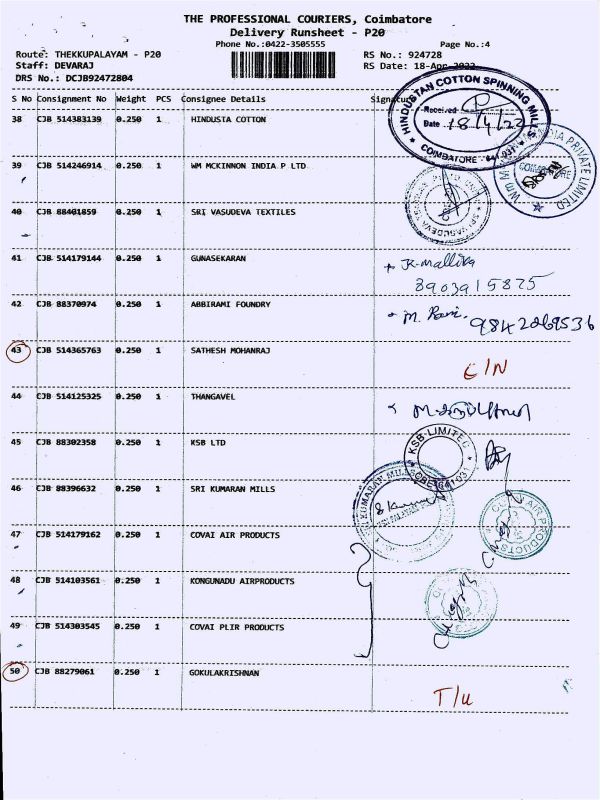 THE PROFESSIONAL COURIERS, Coimbatore
Delivery Runsheet - P20
Phone No.:0422-3505555 Page No.:4
Route: THEKKUPALAYAM - P20 RS No.: 924728
Staff: DEVARAJ RS Date: 18-Apr-2022
DRS No.: DCJB92472804
S No Consignment No Weight PCS Consignee Details Signature
38 CJB 514383139 0.250 1 HINDUSTA COTTON
HINDUSTAN COTTON SPINNING MILLS
Received
Date 18/4/22
COIMBATORE - 641 031
39 CJB 514246914 0.250 1 WM MCKINNON INDIA P LTD
INDIA PRIVATE LIMITED
COIMBATORE
40 CJB 88401859 0.250 1 SRI VASUDEVA TEXTILES
41 CJB 514179144 0.250 1 GUNASEKARAN
K. Mallika
8903915825
42 CJB 88370974 0.250 1 ABBIRAMI FOUNDRY
M. Rani. 9842069536
43 CJB 514365763 0.250 1 SATHESH MOHANRAJ
C/N
44 CJB 514125325 0.250 1 THANGAVEL
45 CJB 88302358 0.250 1 KSB LTD
KSB LIMITED
46 CJB 88396632 0.250 1 SRI KUMARAN MILLS
KUMARAN MILLS
47 CJB 514179162 0.250 1 COVAI AIR PRODUCTS
AIR PRODUCTS
48 CJB 514103561 0.250 1 KONGUNADU AIRPRODUCTS
49 CJB 514303545 0.250 1 COVAI PLIR PRODUCTS
50 CJB 88279061 0.250 1 GOKULAKRISHNAN
T/U